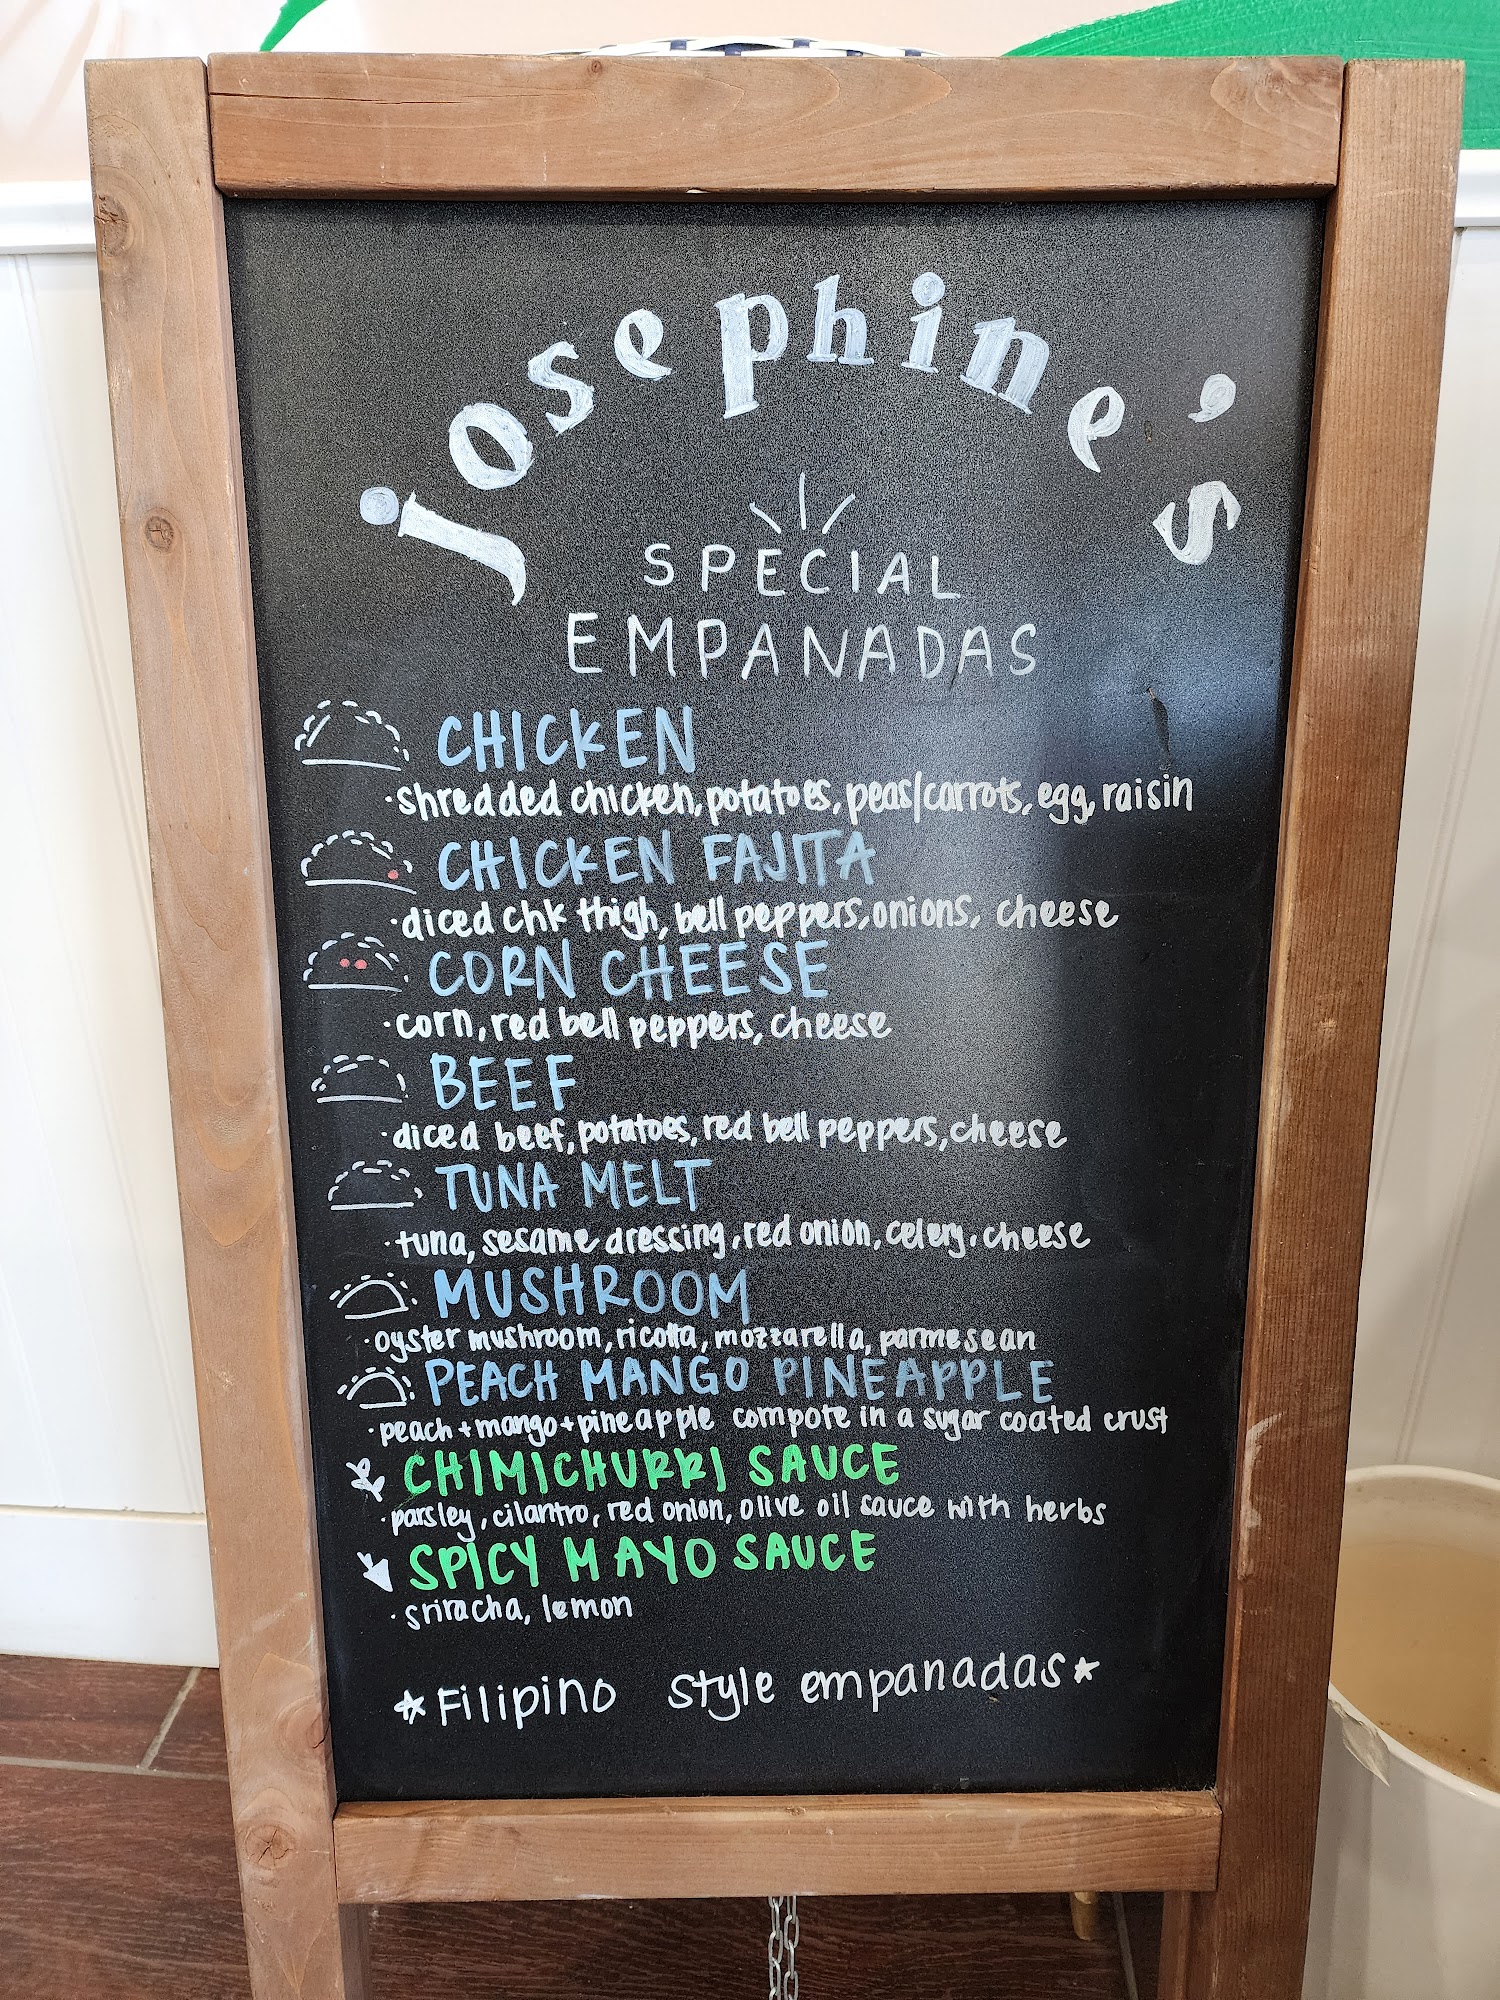 Josephine's
SPECIAL
EMPANADAS
CHICKEN
·shredded chicken, potatoes, peas/carrots, egg, raisin
CHICKEN FAJITA
·diced chk thigh, bell peppers, onions, cheese
CORN CHEESE
·corn, red bell peppers, cheese
BEEF
·diced beef, potatoes, red bell peppers, cheese
TUNA MELT
·tuna, sesame dressing, red onion, celery, cheese
MUSHROOM
·oyster mushroom, ricotta, mozzarella, parmesean
PEACH MANGO PINEAPPLE
·peach+mango+pineapple compote in a sugar coated crust
CHIMICHURRI SAUCE
·parsley, cilantro, red onion, olive oil sauce with herbs
SPICY MAYO SAUCE
·sriracha, lemon
*Filipino style empanadas*